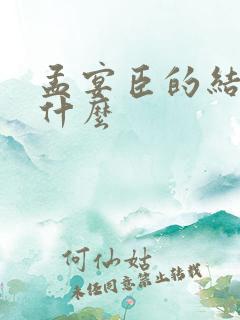 孟宴臣的结
什麽
何仙姑
未经同意禁止转载